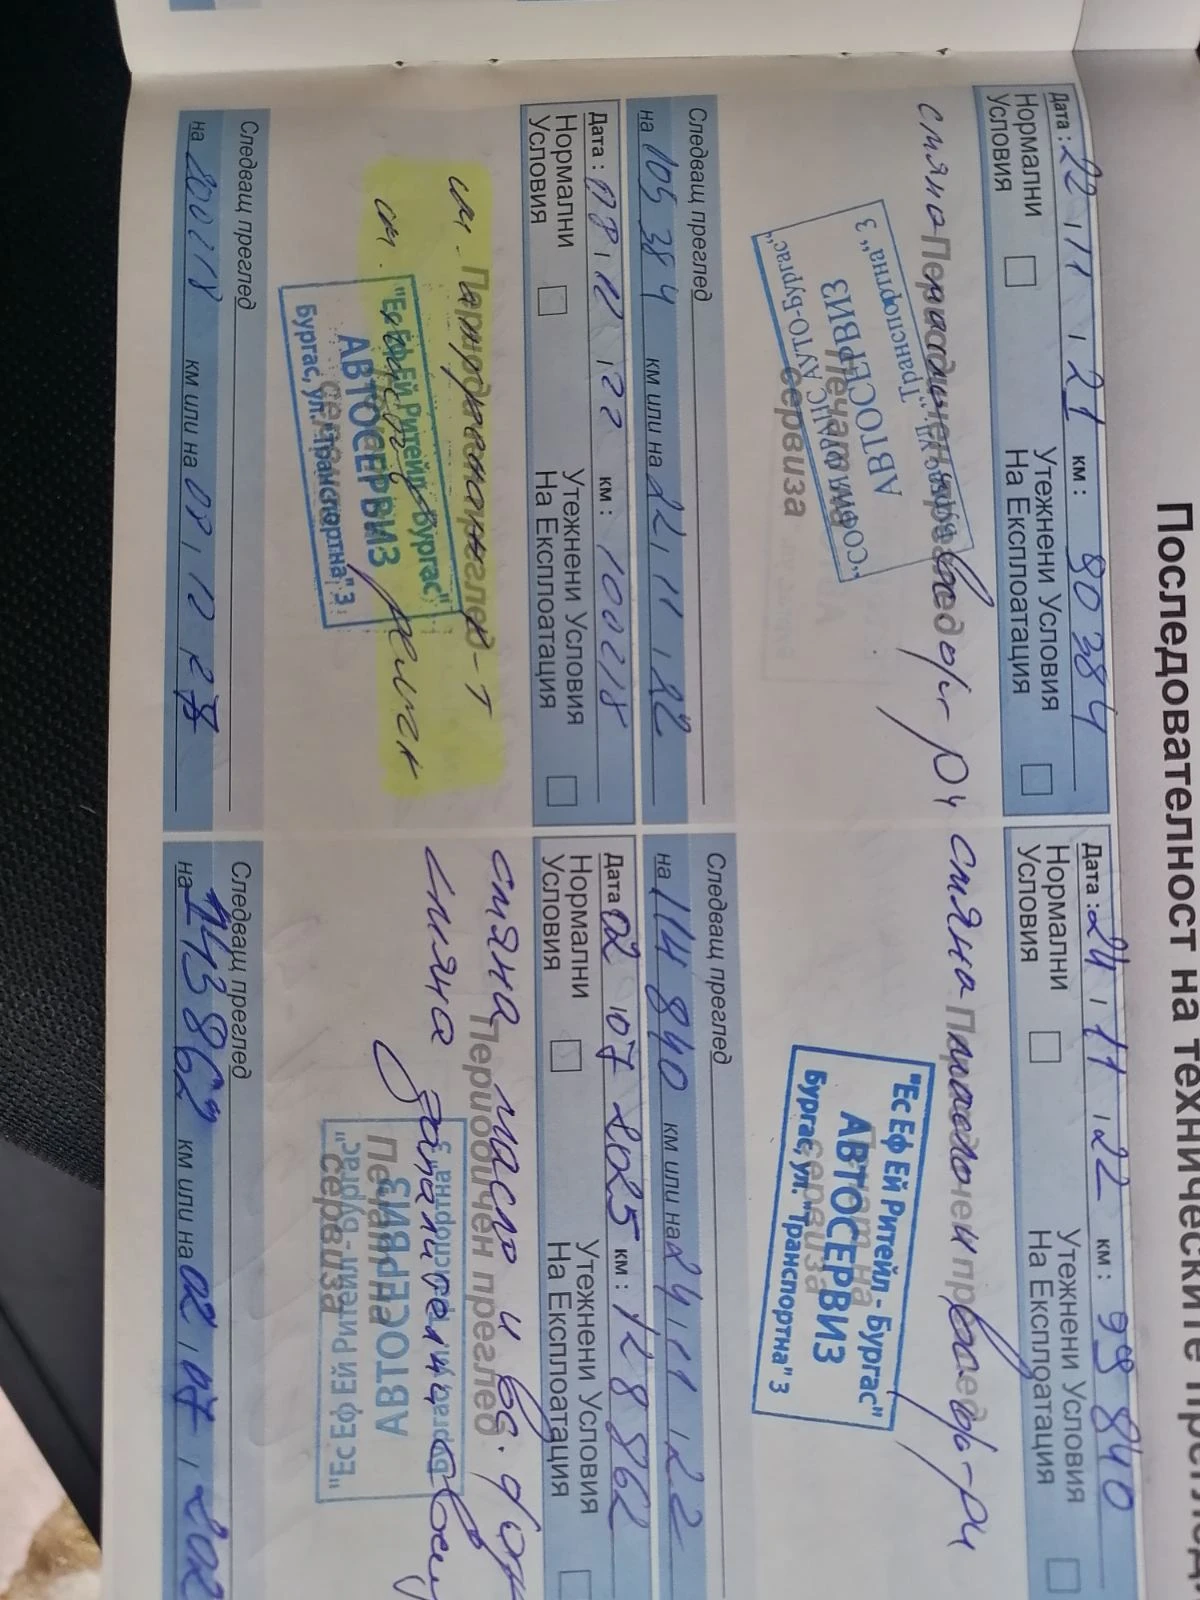 Последователност на технически
Дата : 22 , 11 , 21 км : 80 384
Нормални Условия
Утежнени Условия На Експлоатация
смяна
Периодичен преглед
"СОФИЯ ФРАНС АУТО-Бургас"
АВТОСЕРВИЗ
"Транспортна" 3
Печат на сервиза
Следващ преглед
на 105 384 км или на 22, 11, 22
Дата : 24 , 11 , 22 км : 99 840
Нормални Условия
Утежнени Условия На Експлоатация
смяна масло и
Периодичен преглед
"Ес Еф Ей Ритейл - Бургас"
АВТОСЕРВИЗ
Бургас, ул. "Транспортна" 3
Печат на сервиза
Следващ преглед
на 114 840 км или на 24, 11, 22
Дата : 08, 12 , 22 км : 100218
Нормални Условия
Утежнени Условия На Експлоатация
см.
Периодичен преглед
см. ремък
"Ес Еф Ей Ритейл - Бургас"
АВТОСЕРВИЗ
Бургас, ул. "Транспортна" 3
Следващ преглед
на 200218 км или на 08, 12
Дата 02 , 07 2025 км : 128 862
Нормални Условия
Утежнени Условия На Експлоатация
смяна масло и въз.
Периодичен преглед
смяна запалителни
Печат на сервиза
"Ес Еф Ей Ритейл - Бургас"
АВТОСЕРВИЗ
Следващ преглед
на 143 862 км или на 02, 07, 202